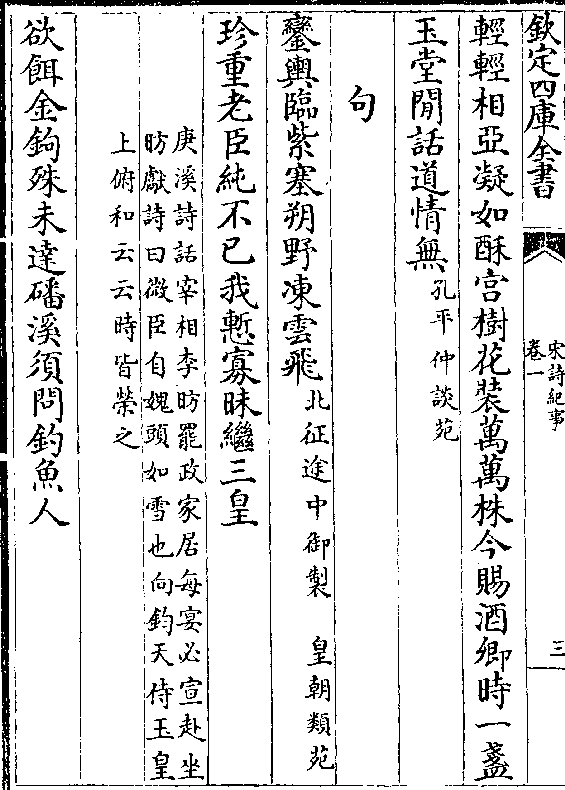 欽定四庫全書
宋詩紀事
卷一
三
輕輕相亞凝如酥宫樹花裝萬萬株今賜酒卿時一盞
玉堂閒話道情無孔平仲談苑
句
鑾輿臨紫塞朔野凍雲飛北征途中御製　皇朝類苑
珍重老臣純不已我慙寡昧繼三皇
庚溪詩話宰相李昉罷政家居每宴必宣赴坐
昉獻詩曰微臣自媿頭如雪也向鈞天侍玉皇
上俯和云云時皆榮之
欲餌金鉤殊未達磻溪須問釣魚人